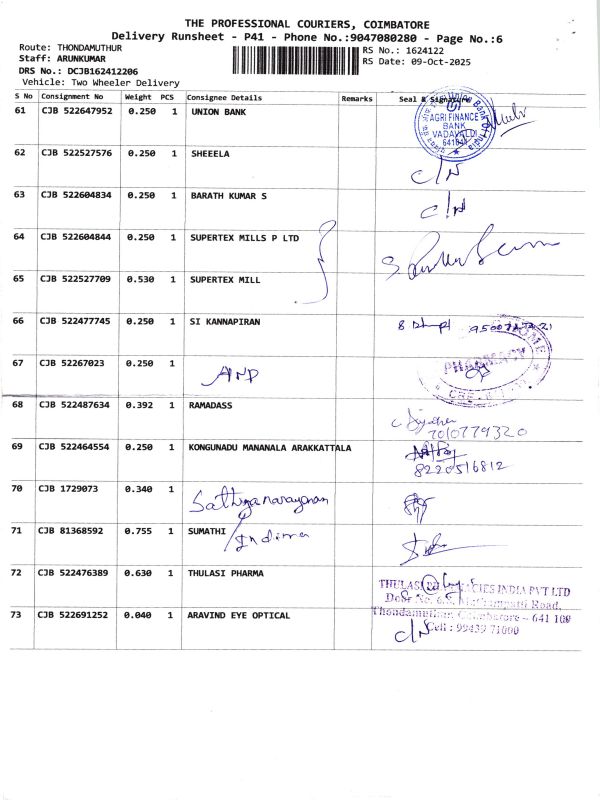 THE PROFESSIONAL COURIERS, COIMBATORE
Delivery Runsheet - P41 - Phone No.:9047080280 - Page No.:6
Route: THONDAMUTHUR
Staff: ARUNKUMAR
DRS No.: DCJB162412206
Vehicle: Two Wheeler Delivery
RS No.: 1624122
RS Date: 09-Oct-2025
S No Consignment No Weight PCS Consignee Details Remarks Seal & Signature
61 CJB 522647952 0.250 1 UNION BANK
AGRI FINANCE
BANK
VADAVALLI
62 CJB 522527576 0.250 1 SHEEELA C/N
63 CJB 522604834 0.250 1 BARATH KUMAR S C/N
64 CJB 522604844 0.250 1 SUPERTEX MILLS P LTD
65 CJB 522527709 0.530 1 SUPERTEX MILL
66 CJB 522477745 0.250 1 SI KANNAPIRAN
67 CJB 52267023 0.250 1
PHARMACY
68 CJB 522487634 0.392 1 RAMADASS
7010779320
69 CJB 522464554 0.250 1 KONGUNADU MANANALA ARAKKATTALA
8220516812
70 CJB 1729073 0.340 1 Sathyanarayanan
71 CJB 81368592 0.755 1 SUMATHI
72 CJB 522476389 0.630 1 THULASI PHARMA
THULASI PHARMACIES INDIA PVT LTD
Road,
Thondamuthur, Coimbatore - 641 109
Cell : 99439 71000
73 CJB 522691252 0.040 1 ARAVIND EYE OPTICAL C/N